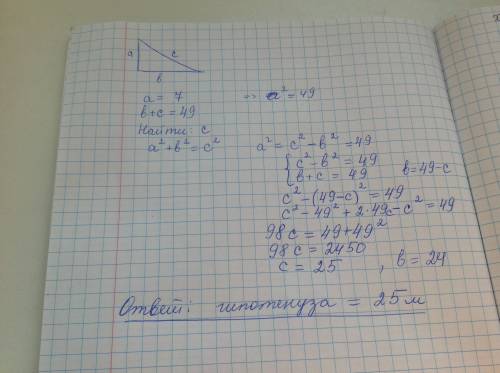 a
c
в
a = 7 => a² = 49
в+c = 49
Найти: c
a²+в² = c²
a² = c² - в² = 49
{ c² - в² = 49
в+c = 49 в=49-c
c² - (49-c)² = 49
c² - 49² + 2·49c - c² = 49
98c = 49+49²
98c = 2450
c = 25 , в = 24
Ответ: гипотенуза = 25 м